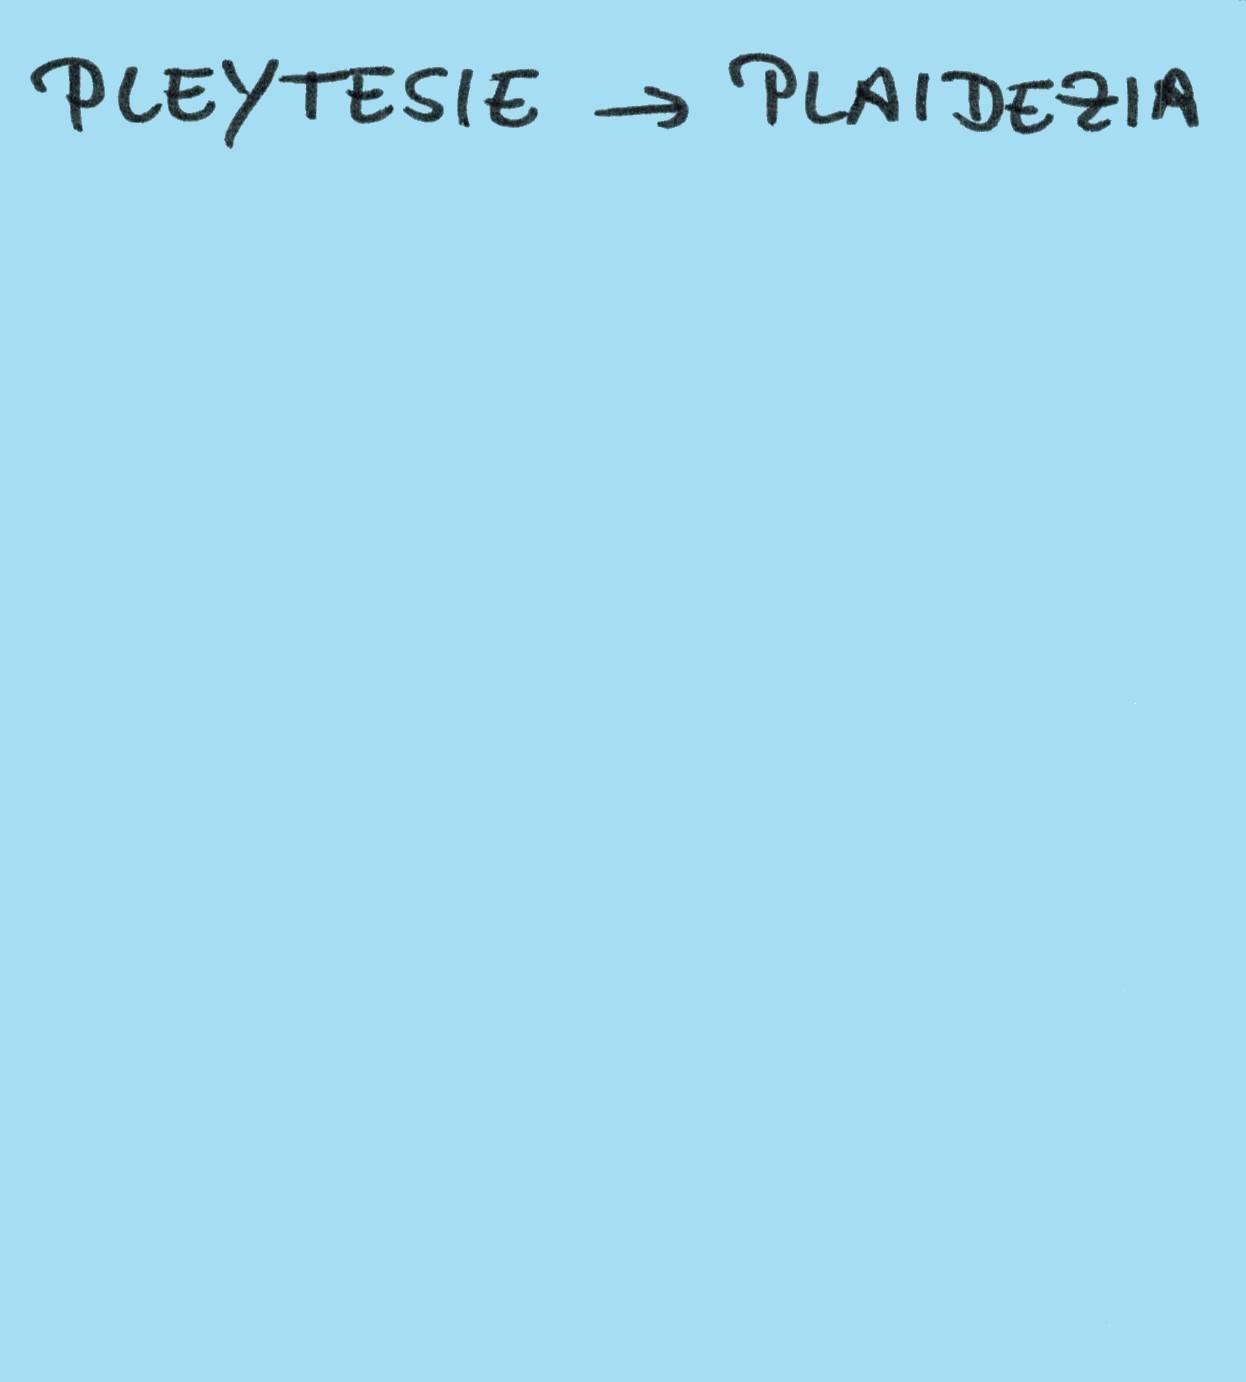 PLEYTESIE → PLAIDEZIA